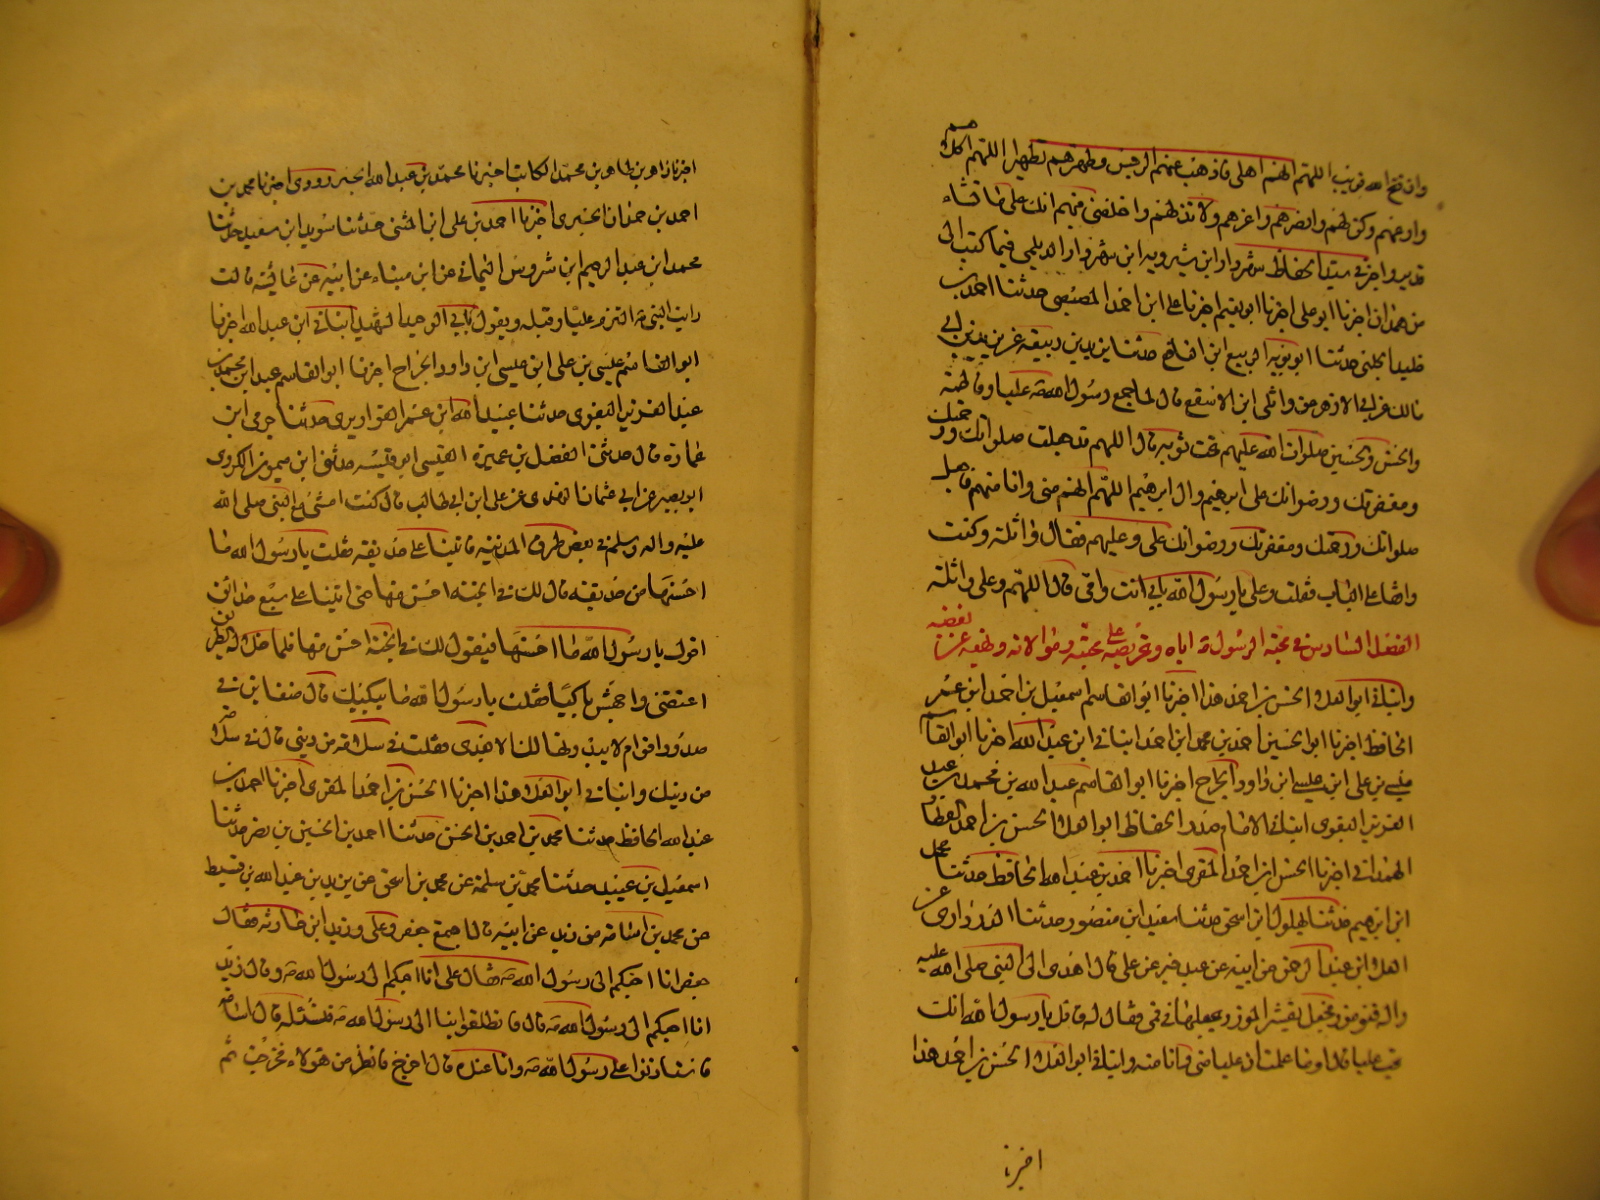 وان فتح الله قريب اللهم انهم اهلي فاذهب عنهم الرجس وطهرهم تطهيرا اللهم اكلاهم
وارعهم وكن لهم وانصرهم واعزهم ولا تذلهم واخلفني فيهم انك على ما تشاء
قدير واخبرني سيد الحفاظ شهردار ابن شيرويه ابن شهردار الديلمي فيما كتب الى
من همدان اخبرنا ابو علي اخبرنا ابو نعيم اخبرنا علي ابن احمد المصيصي حدثنا احمد بن
خليد الحلبي حدثنا ابو توبه الربيع ابن نافع حدثنا يزيد بن ربيعه عن يزيد بن ابي
مالك عن ابي الازهر عن واثلى ابن الاسقع قال لما جمع رسول الله صه عليا وفاطمة
والحسن والحسين صلوات الله عليهم تحت ثوبه قال اللهم قد جعلت صلواتك ورحمتك
ومغفرتك ورضوانك على ابرهيم وال ابرهيم اللهم انهم مني وانا منهم فاجعل
صلواتك ورحمتك ومغفرتك ورضوانك علي وعليهم فقال واثلة وكنت
واقفا على الباب فقلت وعلي يا رسول الله بابي انت وامي قال اللهم وعلى واثلة
الفصل السادس في محبة الرسول صه اياه وتحريضه على محبته وموالاته ونهيه عن بغضه
وانباني ابو العلا الحسن بن احمد هذا اخبرنا ابو القاسم اسمعيل بن احمد ابن عمر
الحافظ اخبرنا ابو الحسين احمد بن محمد ابن احمد ابنا في ابن عبد الله اخبرنا ابو القاسم
عيسى بن علي ابن عيسى ابن داود الجراح اخبرنا ابو القاسم عبد الله بن محمد بن عبد
العزيز البغوي انباني الامام صدر الحفاظ ابو العلا الحسن بن احمد العطار
الهمداني اخبرنا الحسن ابن احمد المقرى اخبرنا احمد بن عبد الله الحافظ حدثنا محمد
ابن ابرهيم حدثنا بهلول ابن اسحق حدثنا سعيد ابن منصور حدثنا الدراوردى عن
العلا ابن عبد الرحمن عن ابيه عن عبد خير عن علي قال اهدى الى النبي صلى الله عليه
واله قنو موز فجعل يقشر الموز ويجعلها في فمي فقال له قائل يا رسول الله انك
تحب عليا قال اوما علمت ان عليا مني وانا منه وانباني ابو العلا الحسن بن احمد هذا
اخبرنا
اخبرنا زاهر بن طاهر بن محمد الكاتب اخبرنا محمد بن عبد الله الخبررودى اخبرنا محمد بن
احمد بن حمدان الحيرى اخبرنا احمد بن علي ابن المثنى حدثنا سويد ابن سعيد حدثنا
محمد ابن عبد الرحيم ابن شروس اليماني عن ابن ميناء عن ابيه عن عائشه قالت
رايت النبي صه التزم عليا وقبله ويقول بابي الوحيد الشهيد ابنا في ابن عبد الله اخبرنا
ابو القاسم عيسى بن علي ابن عيسى ابن داود الجراح اخبرنا ابو القاسم عبد الله ابن محمد بن
عبد العزيز البغوى حدثنا عبيد الله ابن عمر القواريرى حدثنا حرمي ابن
عمارة قال حدثني الفضل بن عميرة القيسى ابو قتيبه حدثني ابن ميمون الكردى
ابو بصير عن ابي عثمان النهدى عن علي ابن ابي طالب قال كنت امشي مع النبي صلى الله
عليه واله وسلم في بعض طرق المدينه فاتينا على حديقه فقلت يا رسول الله ما
احسنها من حديقه قال لك في الجنه احسن منها حتى اتينا على سبع حدائق
اقول يا رسول الله ما احسنها فيقول لك في الجنة احسن منها فلما خلا له الطريق
اعتنقني واجهش باكيا فقلت يا رسول الله ما يبكيك قال ضغاين في
صدور اقوام لا يبدونها لك الا بعدى فقلت في سلامة من ديني قال في سلامة
من دينك وانباني ابو العلا هذا اخبرنا الحسن بن احمد المقرى اخبرنا احمد بن
عبد الله الحافظ حدثنا محمد بن احمد بن الحسن حدثنا احمد بن الحسين بن نصر حدثنا
اسمعيل بن عبيد حدثنا محمد بن سلمة عن محمد بن اسحق عن يزيد بن عبد الله بن قسيط
عن محمد بن اسامة من زيد عن ابيه قال اجتمع جعفر وعلي وزيد ابن حارثه فقال
جعفر انا احبكم الى رسول الله صه فقال علي انا احبكم الى رسول الله صه وقال زيد
انا احبكم الى رسول الله صه قال فانطلقوا بنا الى رسول الله صه فنسئله قال اسامة
فاستاذنوا على رسول الله صه وانا عنده قال اخرج فانظر من هؤلاء فخرجت ثم